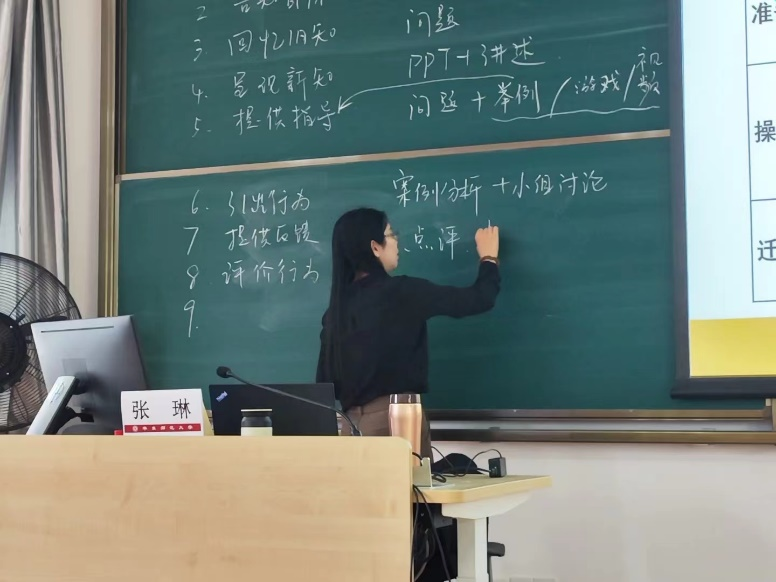 2.
问题
3. 回忆旧知
PPT+讲述.
4. 呈现新知
问题 + 举例 / 游戏 / 视
5. 提供指导
6. 引出行为
案例分析 + 小组讨论
7 提供反馈
、点评.
8 评价行为
9.
准
操
迁
张 琳